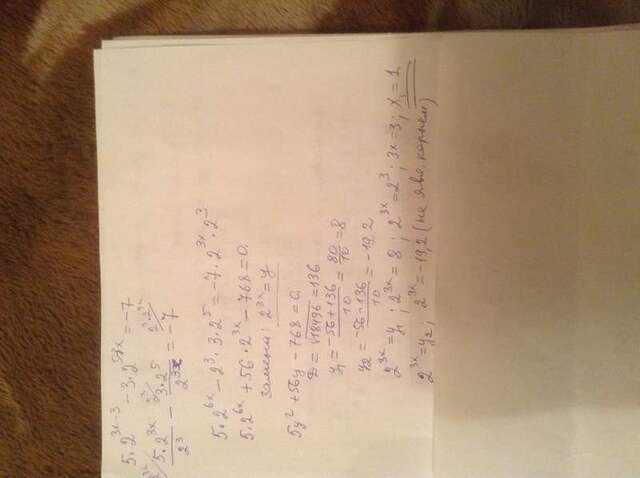 5·2^{3x-3} - 3·2^{5-3x} = -7
^{2^{3x}/} \frac{5·2^{3x}}{2^3} - ^{2^3/} \frac{3·2^5}{2^{3x}} = ^{2^3·2^{3x}/} -7
5·2^{6x} - 2^3·3·2^5 = -7·2^{3x}·2^3
5·2^{6x} + 56·2^{3x} - 768 = 0.
замена: 2^{3x} = y
5y^2 + 56y - 768 = 0.
D = √18496 = 136
y_1 = \frac{-56+136}{10} = \frac{80}{10} = 8
y_2 = \frac{-56-136}{10} = -19,2
2^{3x} = y_1 ; 2^{3x} = 8 ; 2^{3x} = 2^3 ; 3x=3 ; x_1 = 1.
2^{3x} = y_2 ; 2^{3x} = -19,2 (не явл. корнем)